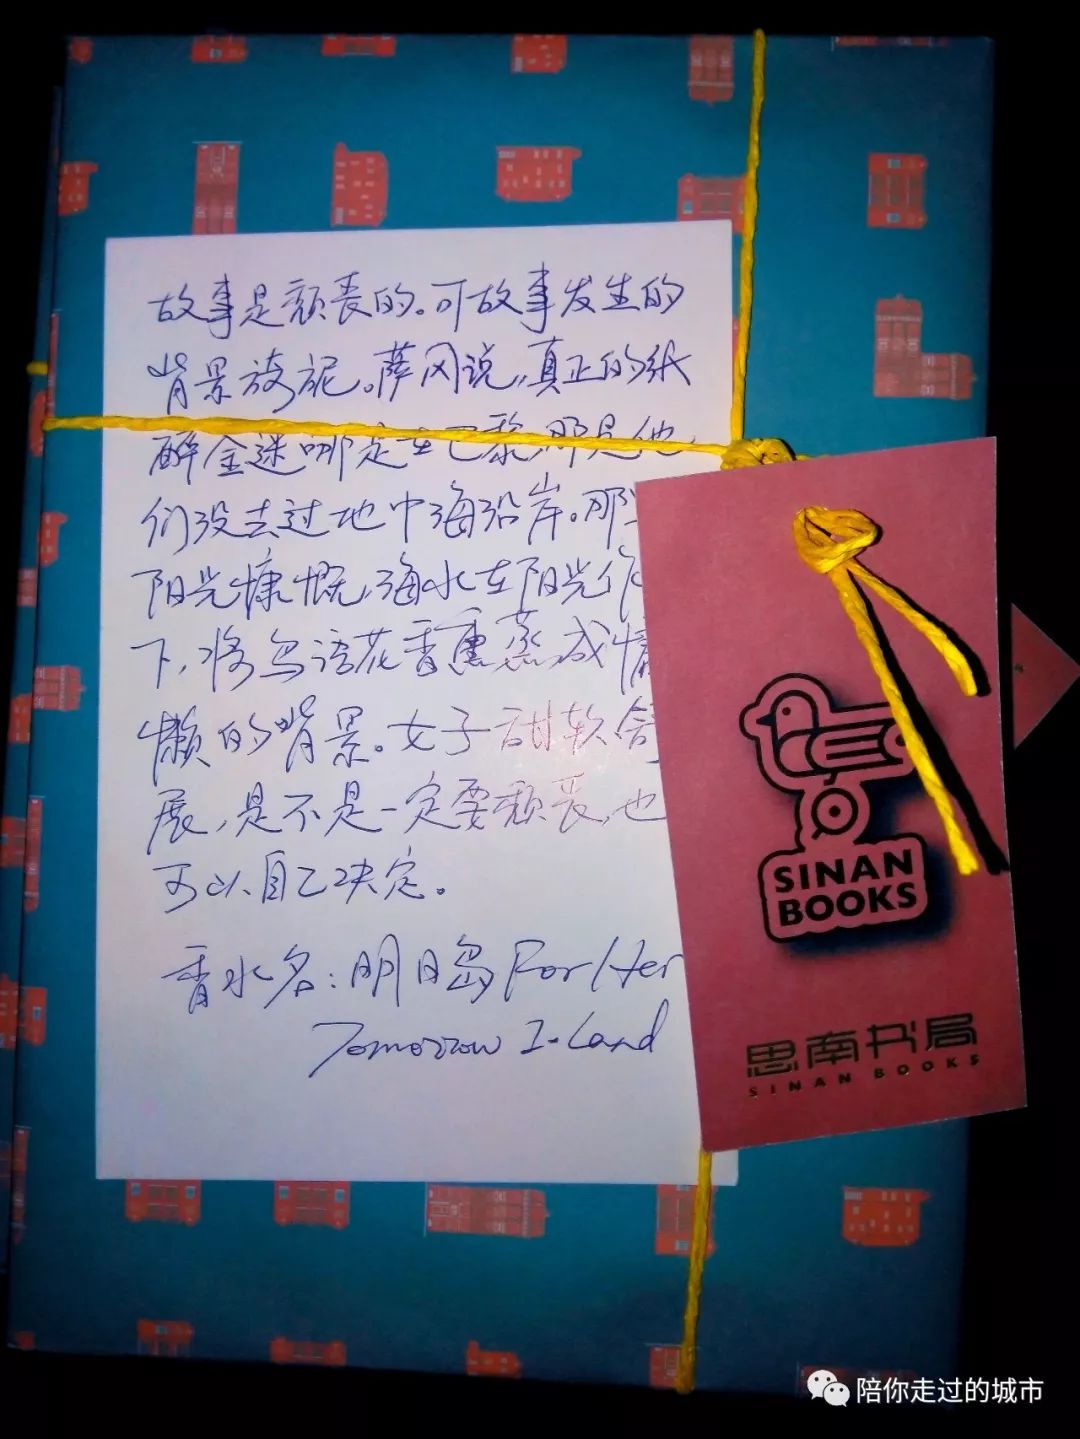 故事是颓丧的。可故事发生的
背景旖旎。萨冈说，真正的纸
醉金迷哪是在巴黎，那是他
们没去过地中海沿岸。那
阳光慷慨，海水在阳光作
下，将鸟语花香熏蒸成慵
懒的背景。女子甜软舒
展，是不是一定要颓丧，也
可以自己决定。
香水名：明日岛 For Her
Tomorrow I-Land
SINAN
BOOKS
思南书局
SINAN BOOKS
陪你走过的城市